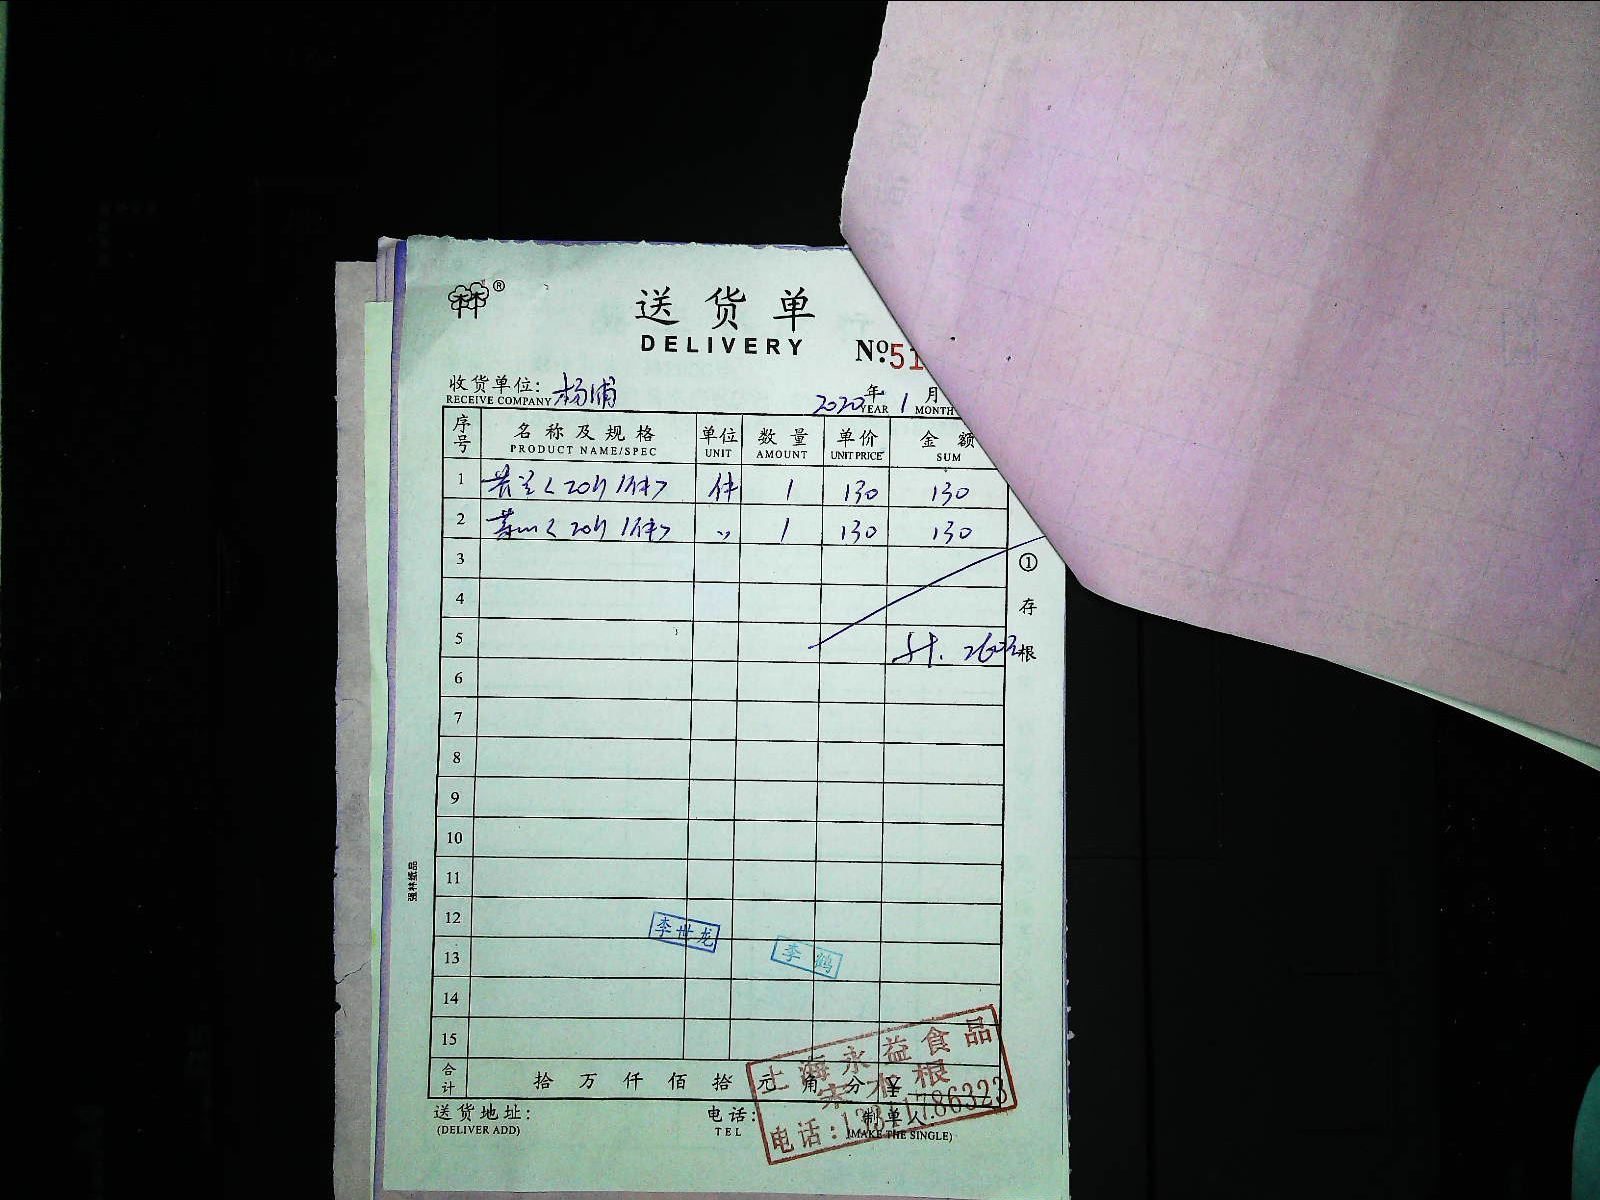 林®
送货单
DELIVERY
Nº:51
收货单位: 杨浦 2020年 1月
RECEIVE COMPANY YEAR MONTH
序号 名称及规格 单位 数量 单价 金额
PRODUCT NAME/SPEC UNIT AMOUNT UNIT PRICE SUM
1 <20斤/件> 件 1 130 130
2 <20斤/件> 〃 1 130 130
3
4
5 计. 260元
6
7
8
9
10
11
12
13
14
15
① 存根
强林纸品
李世龙
李鹤
合计 拾 万 仟 佰 拾 元 角 分 ¥
上海永益食品
根
电话:
送货地址: 电话: 制单人
(DELIVER ADD) TEL (MAKE THE SINGLE)